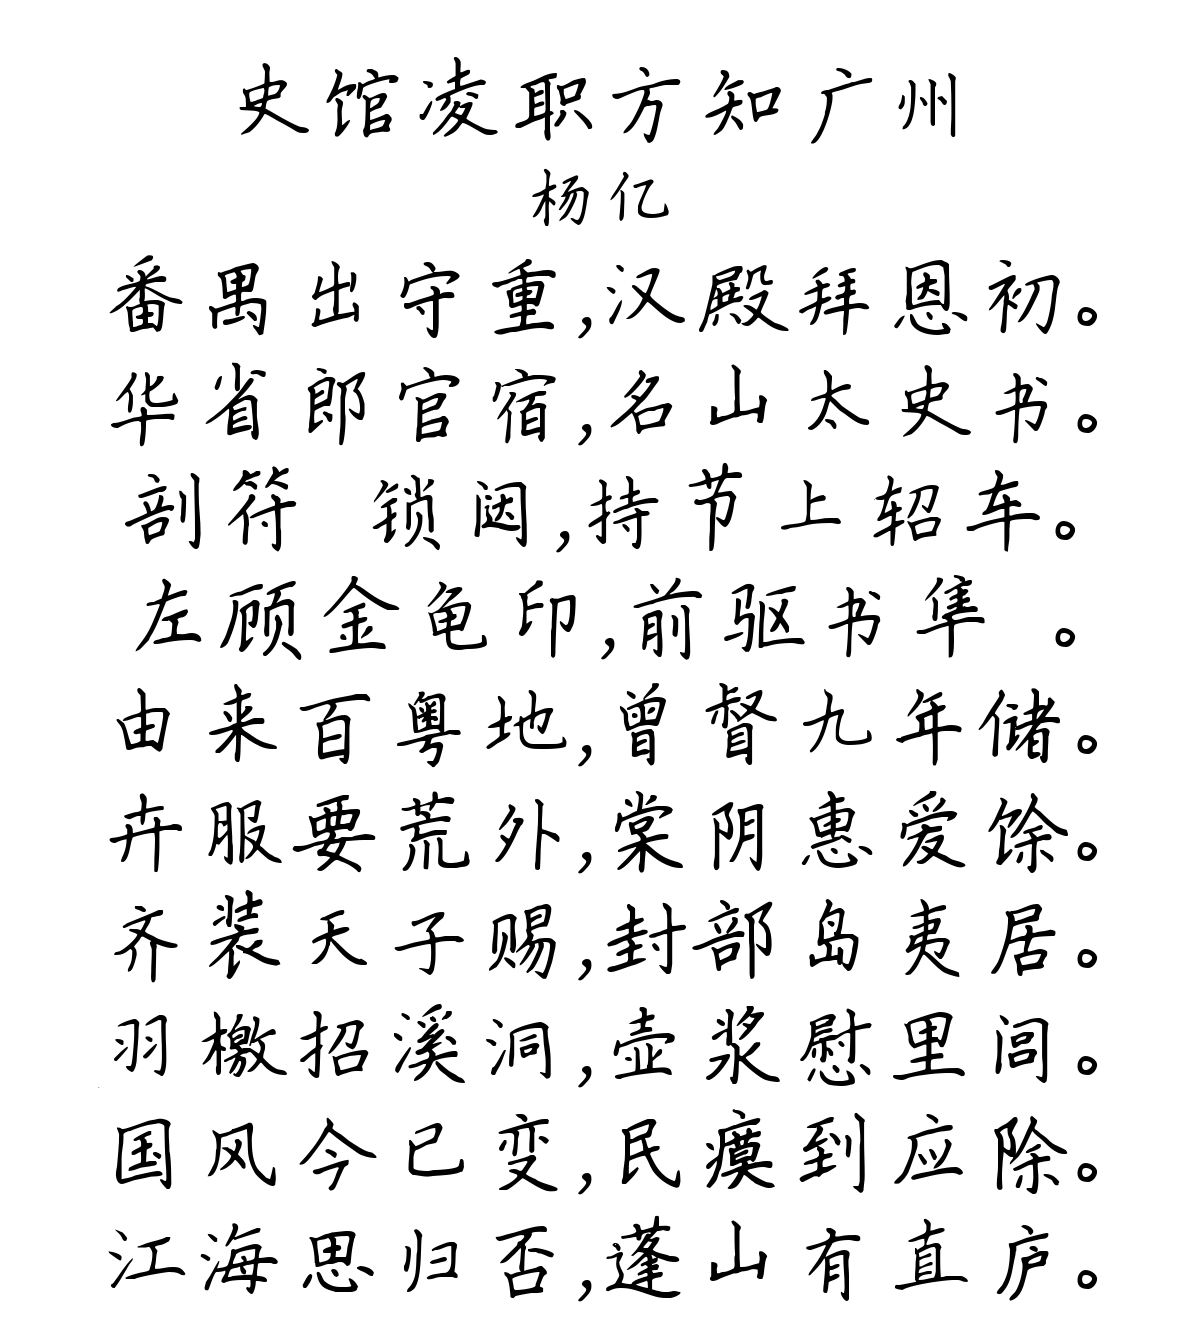 史馆凌职方知广州
杨亿
番禺出守重,汉殿拜恩初。
华省郎官宿,名山太史书。
剖符 锁闼,持节上轺车。
左顾金龟印,前驱书隼 。
由来百粤地,曾督九年储。
卉服要荒外,棠阴惠爱馀。
齐装天子赐,封部岛夷居。
羽檄招溪洞,壶浆慰里闾。
国风今已变,民瘼到应除。
江海思归否,蓬山有直庐。